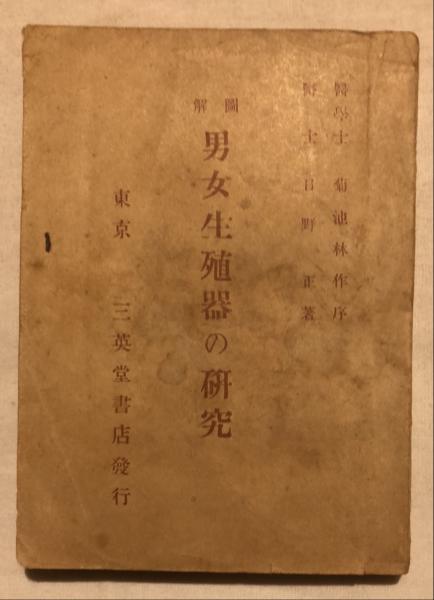 醫学士 菊池林作序
醫士 日野 正著
圖解
男女生殖器の硏究
東京 三英堂書店發行